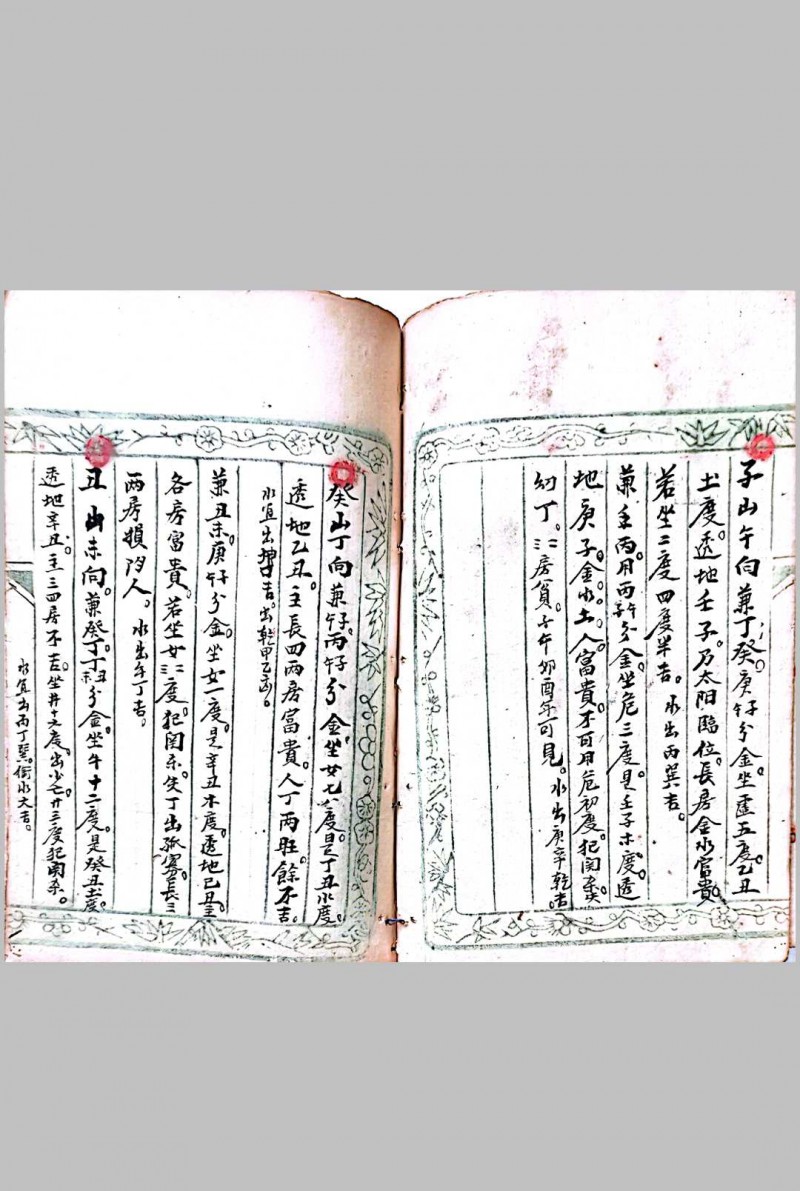 子山午向兼丁癸。庚午庚子分金。坐虛五度。乙丑
土度。透地壬子。乃太阳臨位。長房金水富貴
若坐二度四度半吉。水出丙巽吉。
兼壬丙。用丙子丙午分金。坐危三度。是壬子木度。透
地庚子。金水土人富貴。不可用危初度。犯関杀。失
幼丁。三房貧。子午卯酉年可見。水出庚辛乾吉。
癸山丁向兼午子。丙午丙子分金。坐女七八度。是丁丑水度。
透地乙丑。主長四两房富貴。人丁两旺。餘不吉。
水宜出坤吉。出乾甲乙凶。
兼丑未。庚午庚子分金。坐女一度。是辛丑木度。透地己丑。主
各房富貴。若坐女二三度。犯関杀。失丁出孤寡。長三
两房損人。水出午丁吉。
丑山未向。兼癸丁。丁丑丁未分金。坐牛十二度。是癸丑土度。
透地辛丑。主三四房不吉。坐井十六度。出少亡。廿三度犯関杀。
水宜出丙丁巽。衝水大吉。